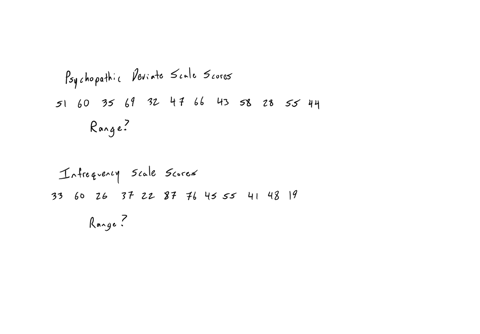 Psychopathic Deviate Scale Scores
51 60 35 69 32 47 66 43 58 28 55 44
Range?
Infrequency Scale Scores
33 60 26 37 22 87 76 45 55 41 48 19
Range?